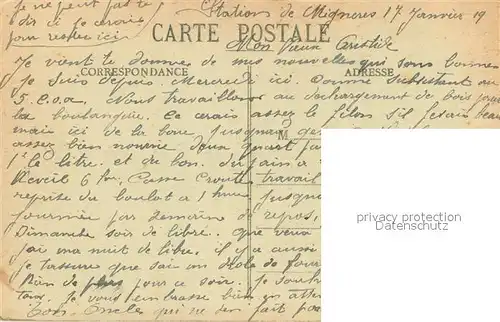 je ne peut fait te
dis si je serais
pour rester ici
Station de Migneres 17 Janvier 19
CARTE POSTALE
Mon Vieux Aristide
Je vient te donner de mes nouvelles qui sont bonnes
CORRESPONDANCE
ADRESSE
Je suis depuis Mercredi ici. Comme
5. C.O.A. Nous travaillons au dechargement de bois pour
la boulangerie. Ce serais assez le filon s'il fesais beau
mais ici de la boue jusqu'au
M
assez bien nourrie deux quart
1f le litre et du bon. du pain a
Reveil 6 hr. Casse Croute, travail
reprise du boulot a 1 heure jusqu
par semaine de repos,
Dimanche soir de libre. que veux
j'ai ma nuit de libre. il y a aussi
je t'assure que sait un drole de four
Rien de plus pour ce soir. Je souh
toux. Je vous embrasse bien en atten
Ton Oncle qui ne s'en fait pas
privacy protection
Datenschutz